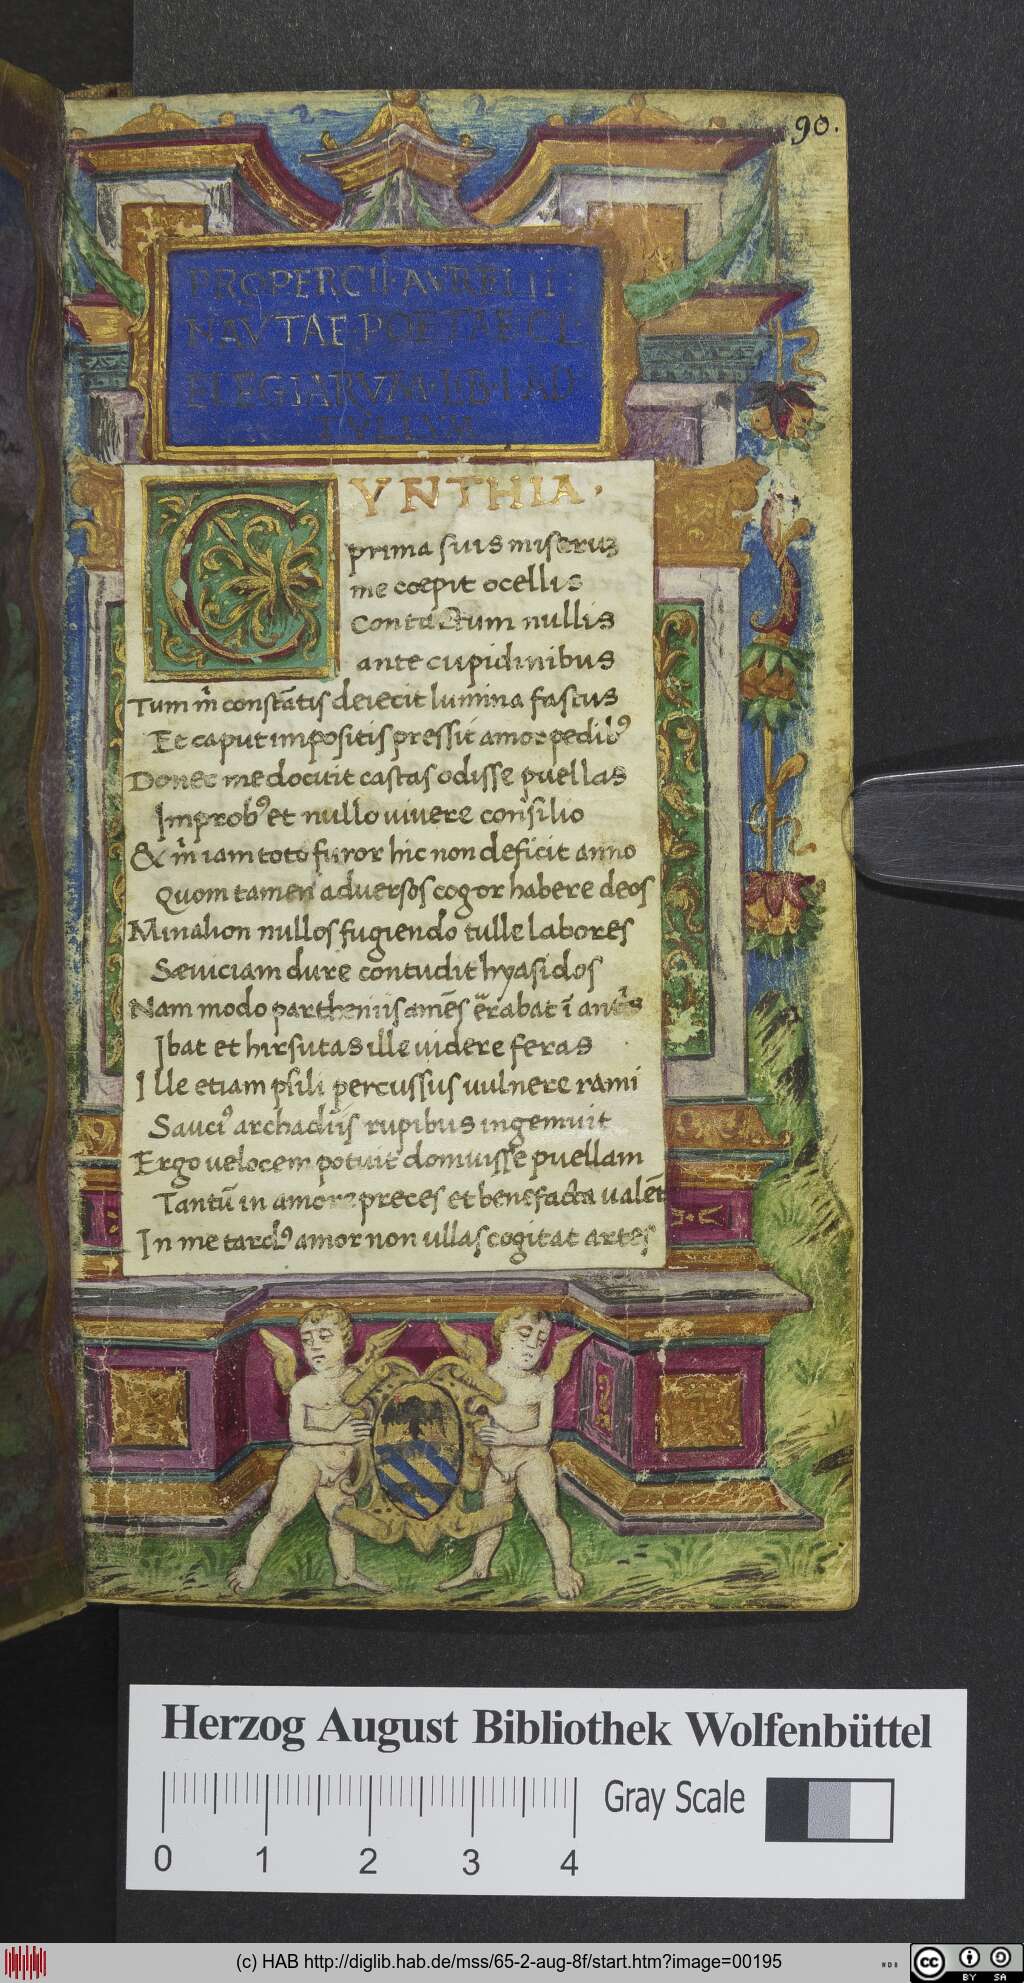 90.
PROPERCII·AVRELII·
NAVTAE·POETAE·CL·
ELEGIARVM·LIB·I·AD
TVLLVM
CYNTHIA,
prima suis miserũ
me coepit ocellis
Contactum nullis
ante cupidinibus
Tum m̃ constãtis deiecit lumina fastus
Et caput impositis pressit amor pedibꝰ
Donec me docuit castas odisse puellas
Improbꝰ et nullo vivere consilio
& m̃ iam toto furor hic non deficit anno
Quom tamen adversos cogor habere deos
Minalion nullos fugiendo tulle labores
Sæuiciam dure contudit hyasidos
Nam modo partheniis amẽs errabat ĩ antris
Ibat et hirsutas ille videre feras
Ille etiam psili percussus vulnere rami
Sauciꝰ archadiis rupibus ingemuit
Ergo velocem potuit domuisse puellam
Tantũ in amore preces et benefacta valẽt
In me tardꝰ amor non ullas cogitat artes
Herzog August Bibliothek Wolfenbüttel
Gray Scale
0 1 2 3 4
(c) HAB http://diglib.hab.de/mss/65-2-aug-8f/start.htm?image=00195
cc BY SA